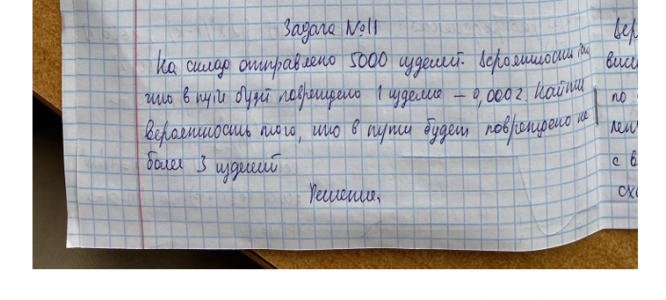 Задача №11
На склад отправлено 5000 изделий. Вероятность
что в пути будет повреждено 1 изделие – 0,0002. Найти
вероятность того, что в пути будет повреждено не
более 3 изделий
Решение.
по
с в